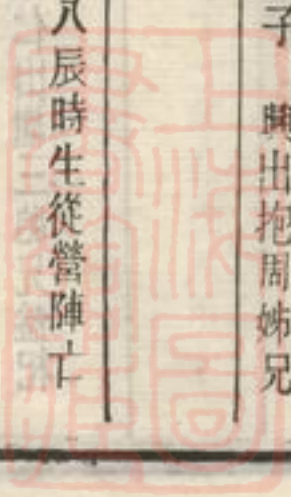 子 興出抱周姊兄
八辰時生從營陣亡